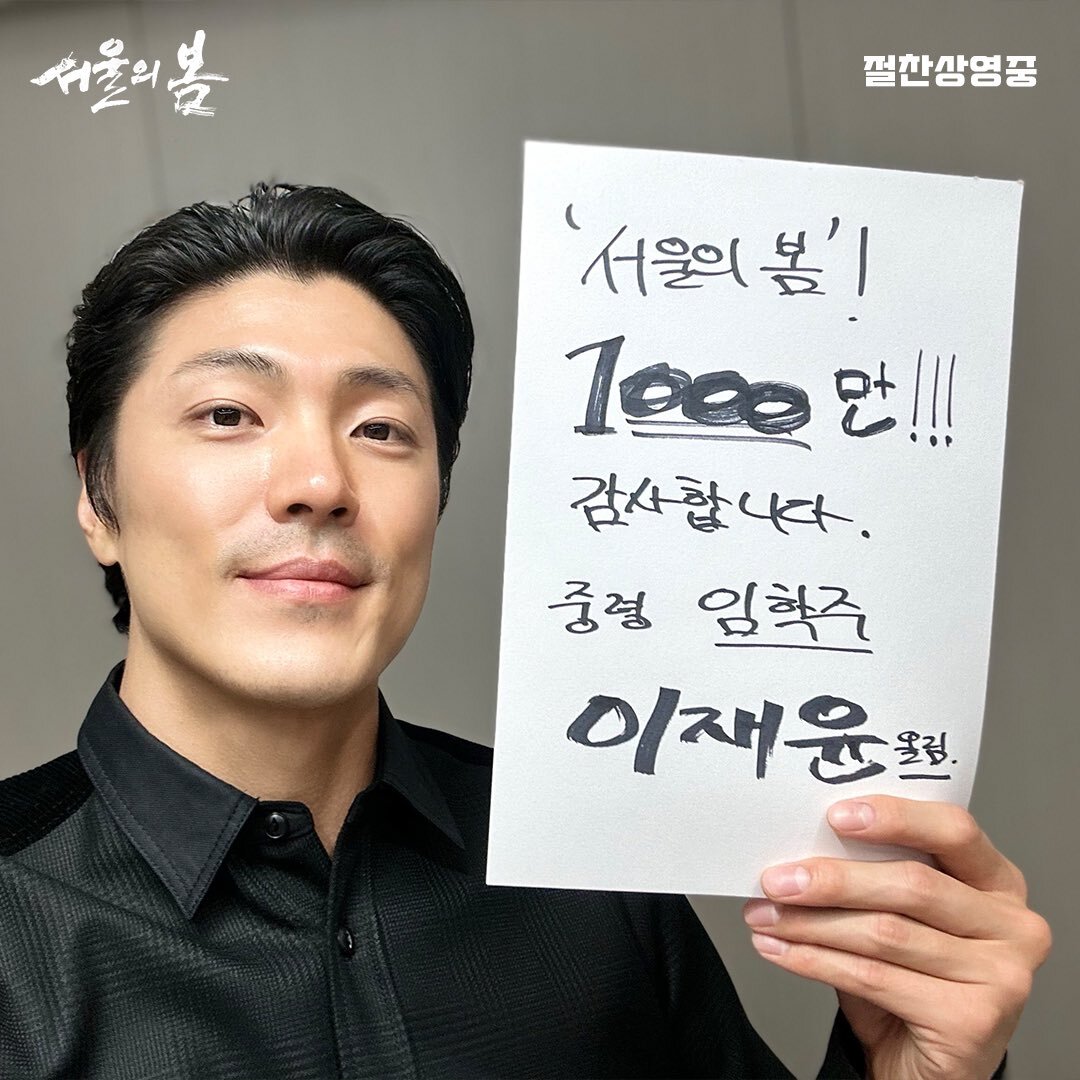 서울의 봄
절찬상영중
'서울의 봄'!
1000만!!!
감사합니다.
중령 임학주
이재윤 올림.